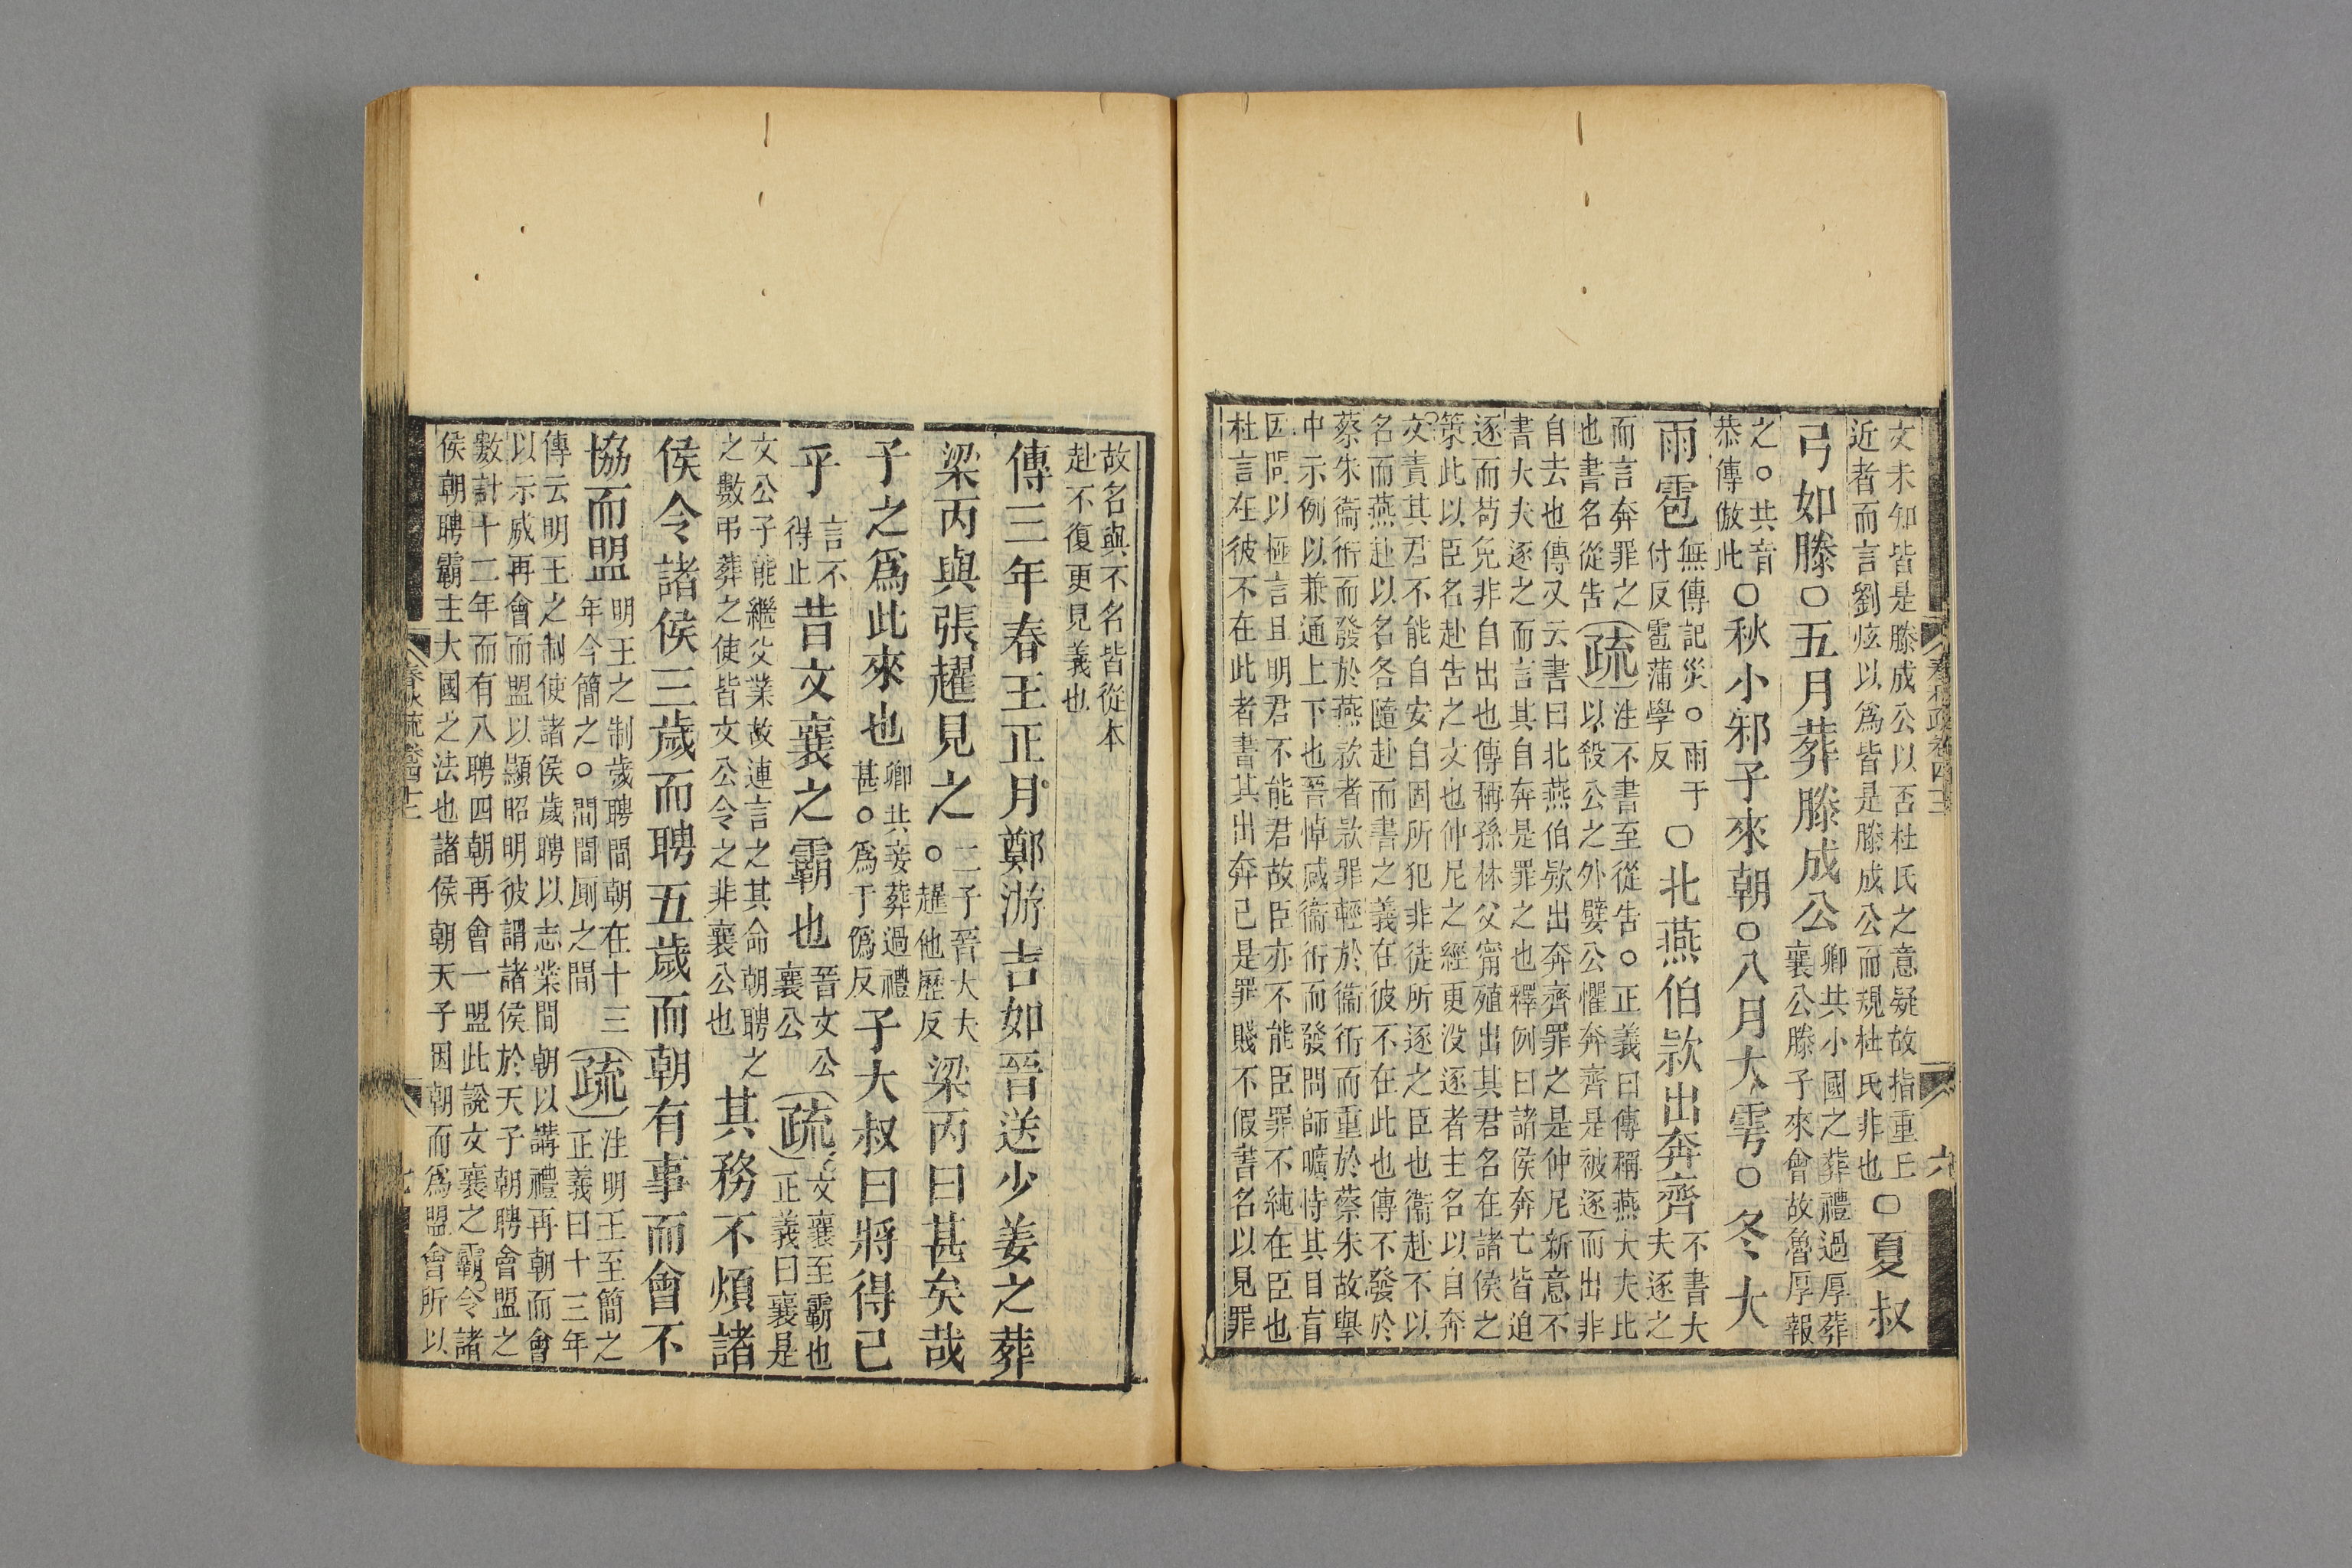 文未知皆是滕成公以否杜氏之意疑故指重丘
近者而言劉炫以爲皆是滕成公而規杜氏非也○夏叔
弓如滕○五月葬滕成公卿共小國之葬禮過厚葬
襄公滕子來會故魯厚報
之○共音
恭傳倣此○秋小邾子來朝○八月大雩○冬大
雨雹無傳記災○雨于
付反雹蒲學反○北燕伯款出奔齊不書大
夫逐之
而言奔罪之
也書名從告疏注不書至從告○正義曰傳稱燕大夫比
以殺公之外嬖公懼奔齊是被逐而出非
自去也傳又云書曰北燕伯欵出奔齊罪之是仲尼新意不
書大夫逐之而言其自奔是罪之也釋例曰諸侯奔亡皆迫
逐而苟免非自出也傳稱孫林父甯殖出其君名在諸侯之
策此以臣名赴告之文也仲尼之經更没逐者主名以自奔
文責其君不能自安自固所犯非徒所逐之臣也衞赴不以
名而燕赴以名各隨赴而書之義在彼不在此也傳不發於
蔡朱衞衎而發於燕款者款罪輕於衞衎而重於蔡朱故舉
中示例以兼通上下也晉悼感衞衎而發問師曠恃其目盲
因問以極言且明君不能君故臣亦不能臣罪不純在臣也
杜言在彼不在此者書其出奔已是罪賤不假書名以見罪
春秋疏卷四十三
六
故名與不名皆從本
赴不復更見義也
傳三年春王正月鄭游吉如晉送少姜之葬
梁丙與張趯見之二子晉大夫
○趯他歷反梁丙曰甚矣哉
子之爲此來也卿共妾葬過禮
甚○爲于僞反子大叔曰將得已
乎言不
得止昔文襄之霸也晉文公
襄公疏文襄至霸也
正義曰襄是
文公子能繼父業故連言之其命朝聘之
之數弔葬之使皆文公令之非襄公也其務不煩諸
侯令諸侯三歲而聘五歲而朝有事而會不
協而盟明王之制歲聘間朝在十三
年今簡之○間間厠之間疏注明王至簡之
正義曰十三年
傳云明王之制使諸侯歲聘以志業間朝以講禮再朝而會
以示威再會而盟以顯昭明彼謂諸侯於天子朝聘會盟之
數計十二年而有八聘四朝再會一盟此說文襄之霸令諸
侯朝聘霸主大國之法也諸侯朝天子因朝而爲盟會所以
春秋疏卷四十三
七